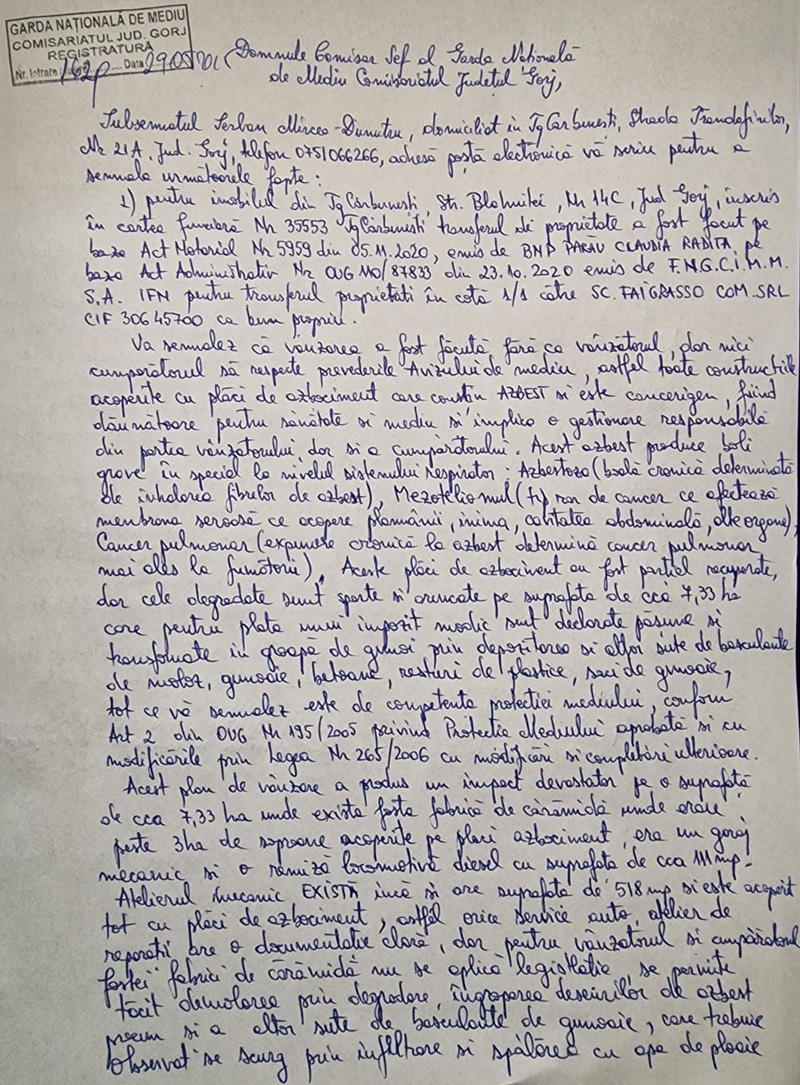 GARDA NAȚIONALĂ DE MEDIU
COMISARIATUL JUD. GORJ
REGISTRATURĂ
Nr. Intrare 162p Data 29.05.201
Domnule Comisar Sef al Garda Națională
de Mediu Comisariatul Județul Gorj,
Subsemnatul Serban Mircea-Dumitru, domiciliat in Tg Cărbunesti, Strada Trandafirilor,
Nr 21A, Jud. Gorj, telefon 0751066266, adresă poștă electronică vă scriu pentru a
semnala următoarele fapte:
1) pentru imobilul din Tg Cărbunesti, Str. Blahnitei, Nr 14C, Jud Gorj, inscris
în cartea funciară Nr 35553 Tg Cărbunesti transferul de proprietate a fost făcut pe
baza Act Notarial Nr 5959 din 05.11.2020, emis de BNP PARAU CLAUDIA RADITA, pe
baza Act Administrativ Nr OUG 110/87833 din 23.10.2020 emis de F.N.G.C.I.M.M.
S.A. IFN pentru transferul proprietati în cotă 1/1 către SC. FAIGRASSO COM. SRL
CIF 30645700 ca bun propriu.
Va semnalez că vânzarea a fost făcută fără ca vânzătorul, dar nici
cumpărătorul să respecte prevederile Avizului de mediu, astfel toate constructiile
acoperite cu plăci de azbociment care contin AZBEST si este cancerigen, fiind
dăunătoare pentru sănătate si mediu si implica o gestionare responsabilă
din partea vânzatorului, dar si a cumpărătorului. Acest azbest produce boli
grave în special la nivelul sistemului respirator: Azbestoza (boală cronică determinată
de inhalarea fibrelor de azbest), Mezoteliomul (tip rar de cancer ce afectează
menbrana seroasă ce acopere plamânii, inima, cavitatea abdominală, alte organe),
Cancer pulmonar (expunere cronică la azbest determină cancer pulmonar
mai ales la fumători). Aceste plăci de azbociment au fost partial recuperate,
dar cele degradate sunt sparte si aruncate pe suprafata de cca 7,33 ha
care pentru plata unui impozit modic sunt declarate păsune si
transformate in groapă de gunoi prin depozitarea si altor sute de basculante
de moloz, gunoaie, betoane, resturi de plastice, saci de gunoaie,
tot ce vă semnalez este de competenta protectiei mediului, conform
Art 2 din OUG Nr 195/2005 privind Protectia Mediului aprobată si cu
modificările prin Legea Nr 265/2006 cu modificări si completări ulterioare.
Acest plan de vânzare a produs un impact devastator pe o suprafată
de cca 7,33 ha unde exista fosta fabrică de cărămidă unde erau
peste 3ha de soproane acoperite pe placi azbociment, era un garaj
mecanic si o remiză locomotivă diesel cu suprafata de cca 111 mp.
Atelierul mecanic EXISTĂ încă si are suprafata de 518 mp si este acoperit
tot cu plăci de azbociment, astfel orice service auto, atelier de
reparatii are o documentatie clară, dar pentru vânzatorul si cumpăratorul
fostei fabrici de cărămidă nu se aplică legislatia, se permite
tăcit demolarea prin degradare, îngroparea deseurilor de azbest
precum si a altor sute de basculante de gunoaie, care trebuie
observat se scurg prin infiltrare si spălarea cu apa de ploaie